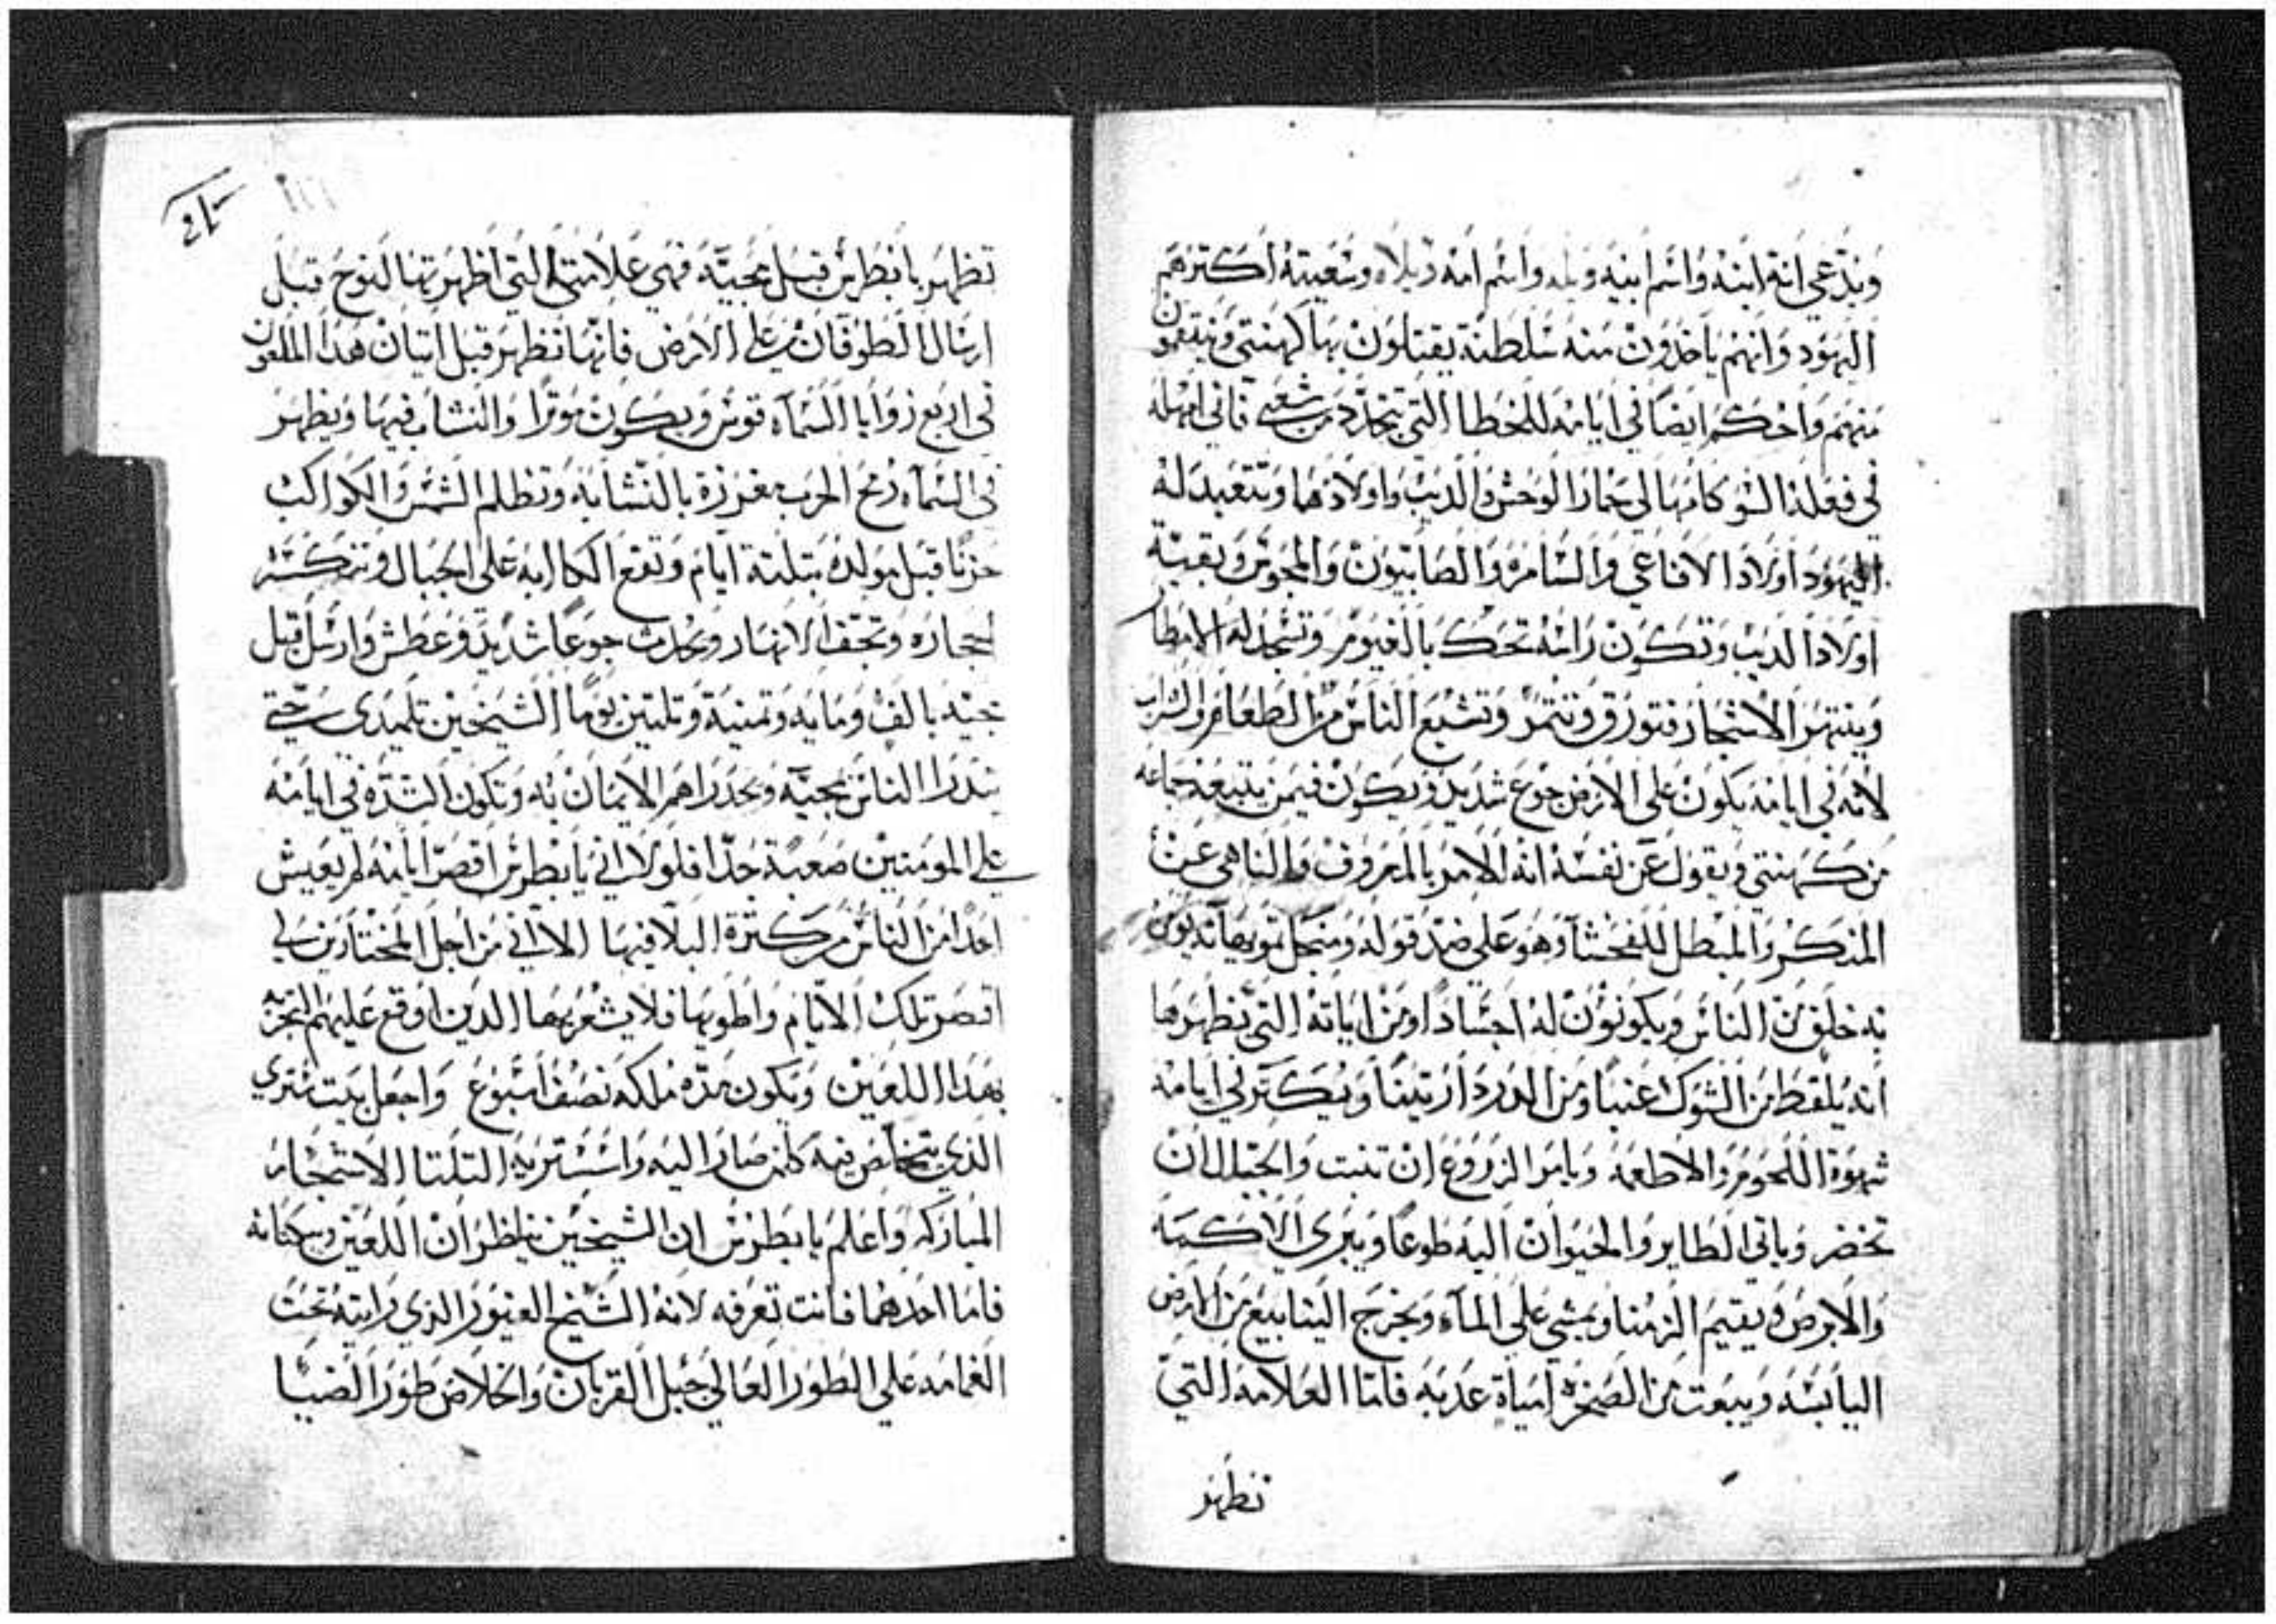 ويدعي انه ابنه واسم ابيه واسم امه وشعيته اكترهم
اليهود وانهم ياخدون منه سلطنة يقتلون بها كهنتي وينتقمون
منهم واحكم ايضا في ايامه للخطا التي من شعبي فاني امهله
في فعله السو كامهالي حمار الوحش والديب واولادهما وتتعبد له
اليهود اولاد الافاعي والسامره والصابيون والمجوس وبقية
اولاد الديب وتكون راسه تحك بالغيوم وتسجد له الامطار
وينتهر الاشجار فتورق وتتمر وتشبع الناس من الطعام والشراب
لانه في ايامه يكون على الارض جوع شديد ويكون فيمن يتبعه جماعه
من كهنتي ويقول عن نفسه انه الامر بالمعروف والناهي عن
المنكر والمبطل للفحشا وهو على ضد قوله ومن
به خلق من الناس ويكونون له اجسادا ومن اياته التي تظهر
انه يلقط من الشوك عنبا ومن تينا ويكتر في ايامه
شهوة اللحوم والاطعمة ويامر الزروع ان تنبت والجبل ان
تخضر وياتي الطاير والحيوان اليه طوعا ويبري الاكمه
والابرص ويقيم الزمنا ويمشي على المآء ويخرج الينابيع من الارض
اليابسه ويبعت من الصخره امياة عدبه فاما العلامه التي
تظهر
تظهر يا بطرس قبل مجيه فهي علامتي التي اظهرتها لنوح قبل
ارسال الطوفان على الارض فانها تظهر قبل اتيان هدا الملعون
في اربع زوايا السمآء قوس ويكون موترا والنشاب فيها ويظهر
في السمآء رمح الحرب مغرزة بالنشابه وتظلم الشمس والكواكب
حزنا قبل مولده بتلتة ايام وتقع الكابه على الجبال وتتكسر
احجاره وتجف الانهار ويحدث جوعا شديد وعطش وارسل قبل
مجيه بالف ومايه وتمنية وتلتين يوما الشيخين تلميدي حتي
يندرا الناس بمجيه ويحدراهم الايمان به وتكون الشده في ايامه
على المومنين صعبة جدا فلولا اني يا بطرس اقصر ايامه لم يعيش
احدا من الناس من كترة البلا فيها الا اني من اجل المختارين لي
اقصر تلك الايام واطويها فلا يشعر بها الدين اوقع عليهم
بهدا اللعين ويكون مدة ملكه نصف اسبوع واجعل بيت
الدي يتخلص فيه كلمن صار اليه واستتر به التلتا الاشجار
المباركه واعلم يا بطرس ان الشيخين يناظران اللعين ويبكتانه
فاما احدهما فانت تعرفه لانه الشيخ الغيور الدي رايته تحت
الغمامه على الطور العالي جبل القربان والخلاص طور الضيا